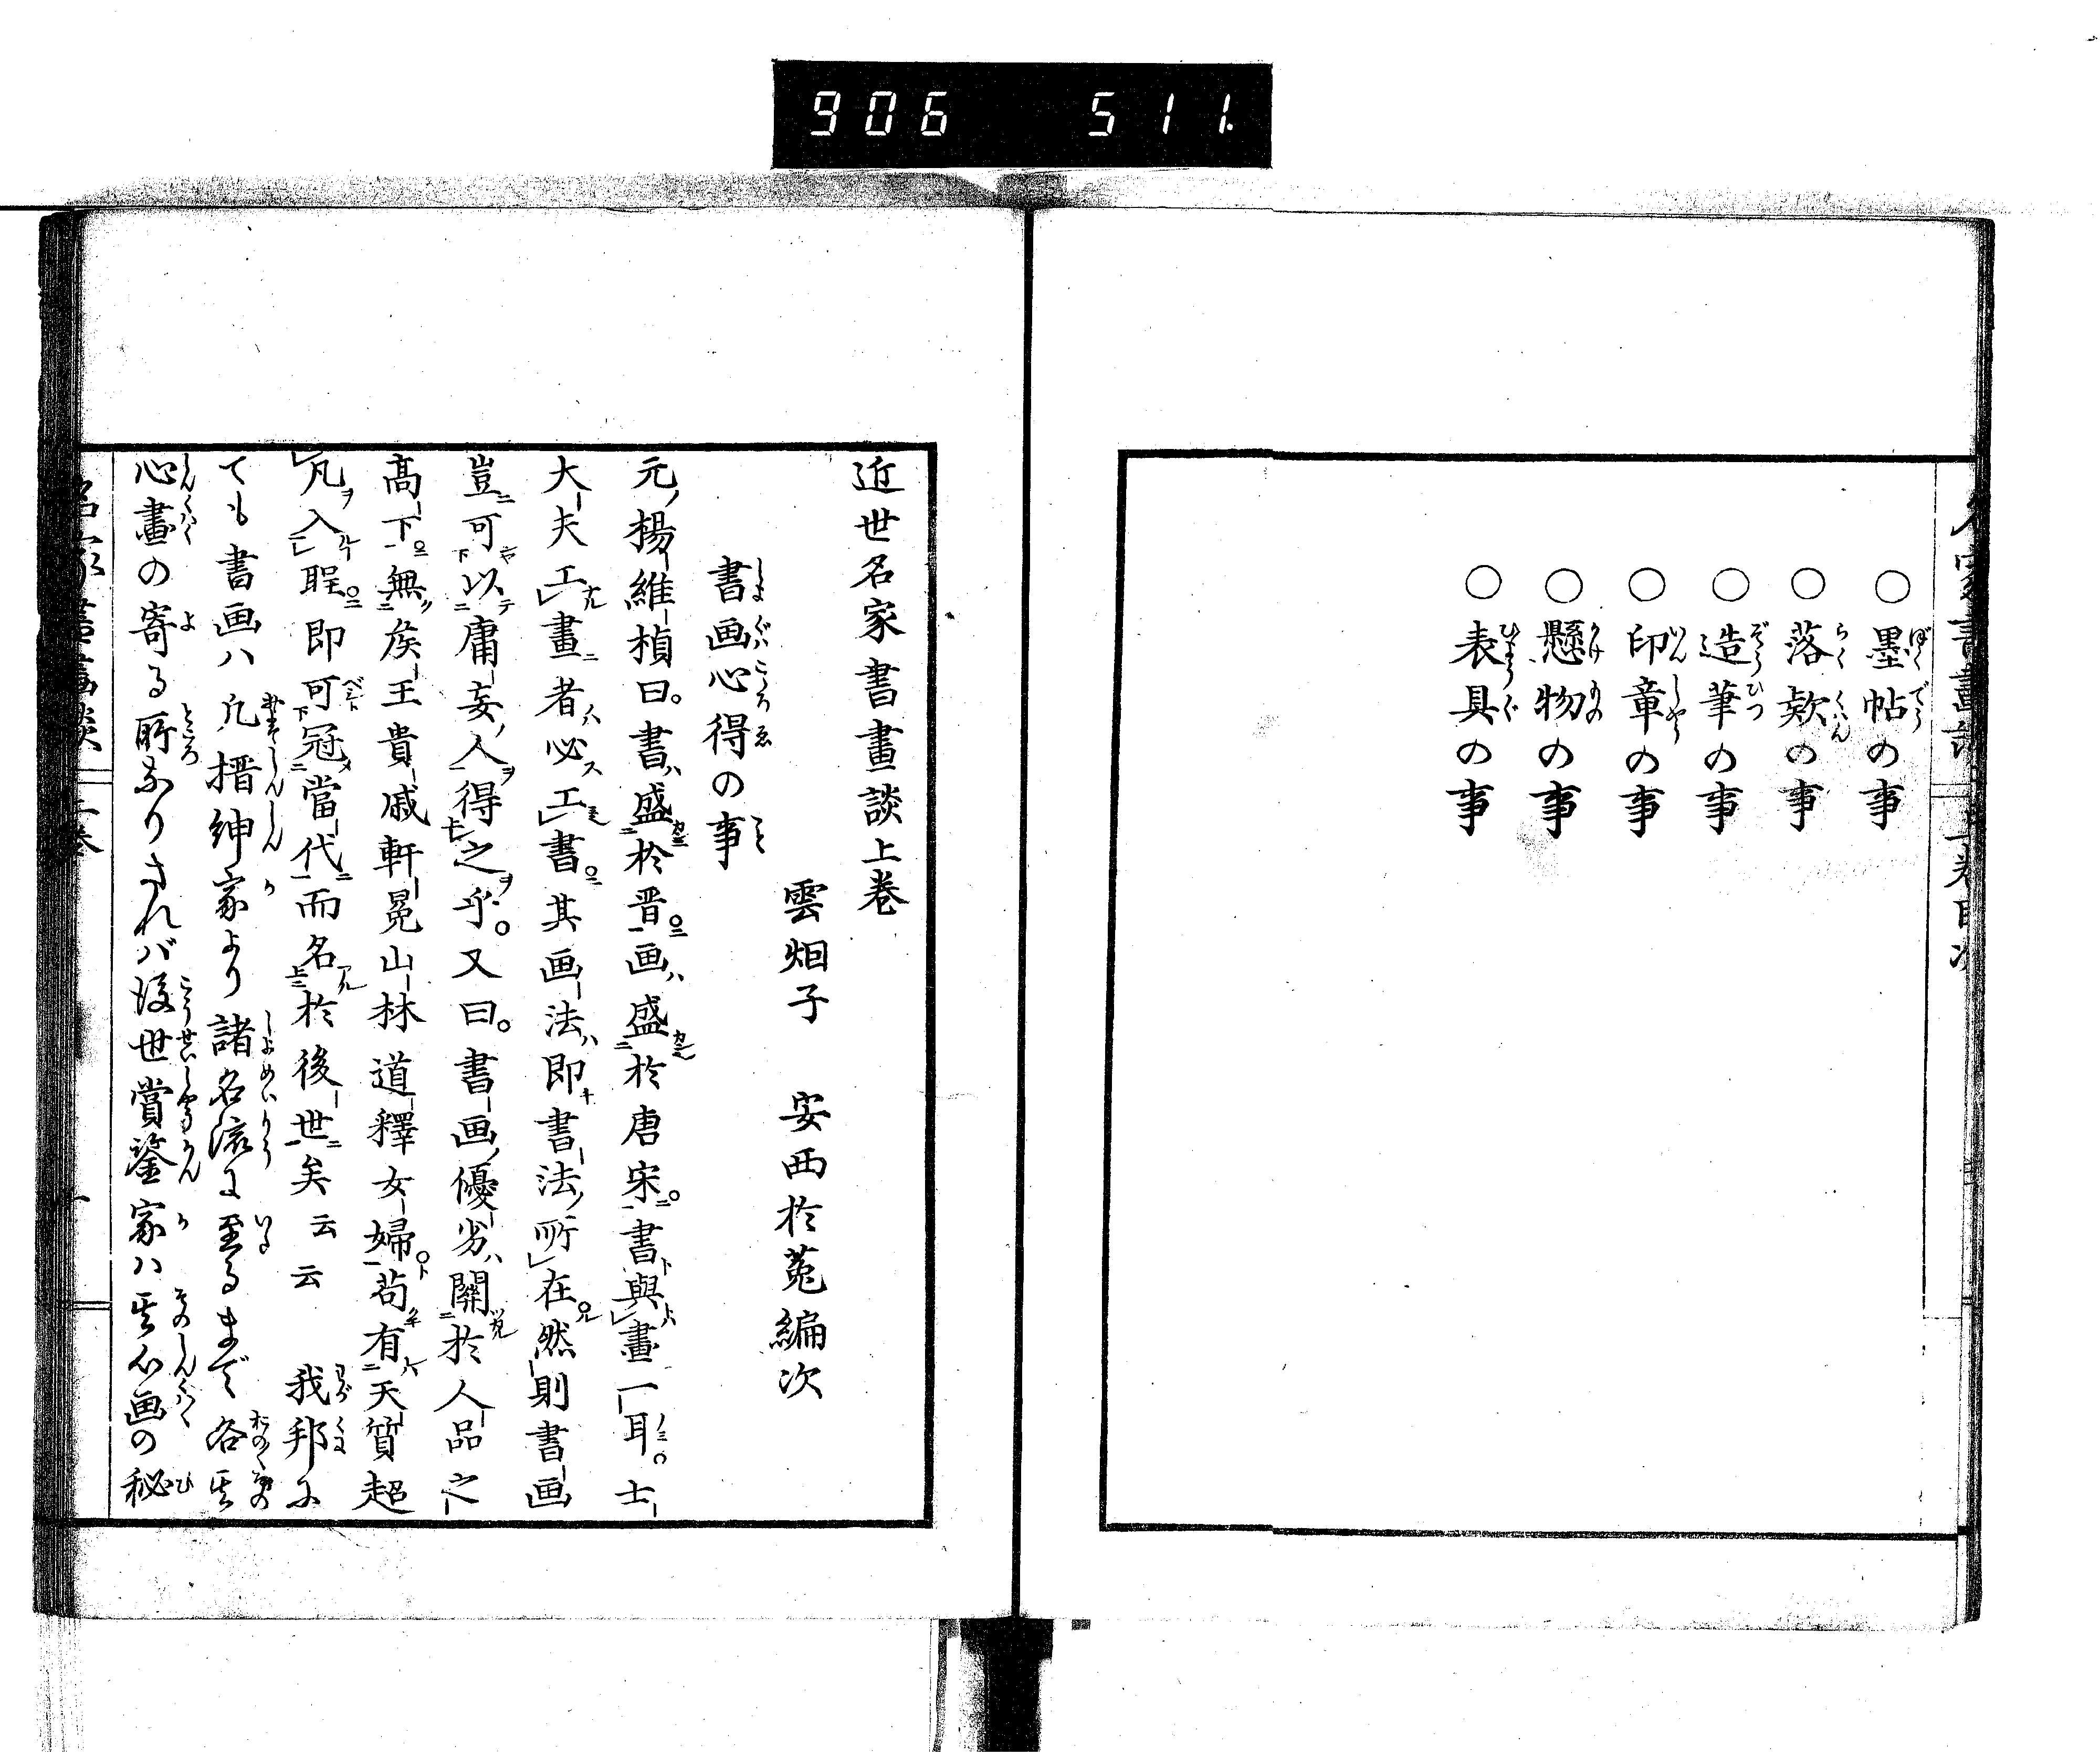 906 511.
○墨帖の事
○落欵の事
○造筆の事
○印章の事
○懸物の事
○表具の事
近世名家書畫談上巻
雲烟子 安西於菟編次
書画心得の事
元楊維楨曰。書盛於晋画盛於唐宋。書與畫一耳。士
大夫工畫者必工書其画法即書法所在然則書画
豈可以庸妄人得之乎。又曰。書画優劣關於人品之
高下無矦王貴戚軒冕山林道釋女婦苟有天質超
凡入聖即可冠當代而名於後世矣云云 我邦に
ても書画ハ凡搢紳家より諸名流に至るまで各其
心畫の寄る所なりされバ後世賞鑒家ハ其心画の秘